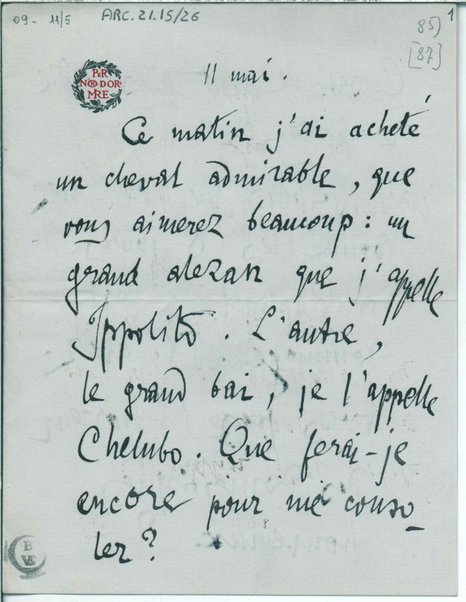 09 - 11/5 ARC.21.15/26 85) 1
[87]
PER
NON DOR
MIRE
11 mai.
Ce matin j'ai acheté
un cheval admirable, que
vous aimerez beaucoup: un
grand alezan que j'appelle
Ippolito. L'autre,
le grand bai, je l'appelle
Chelubo. Que ferai-je
encore pour me conso-
ler?
B
VE